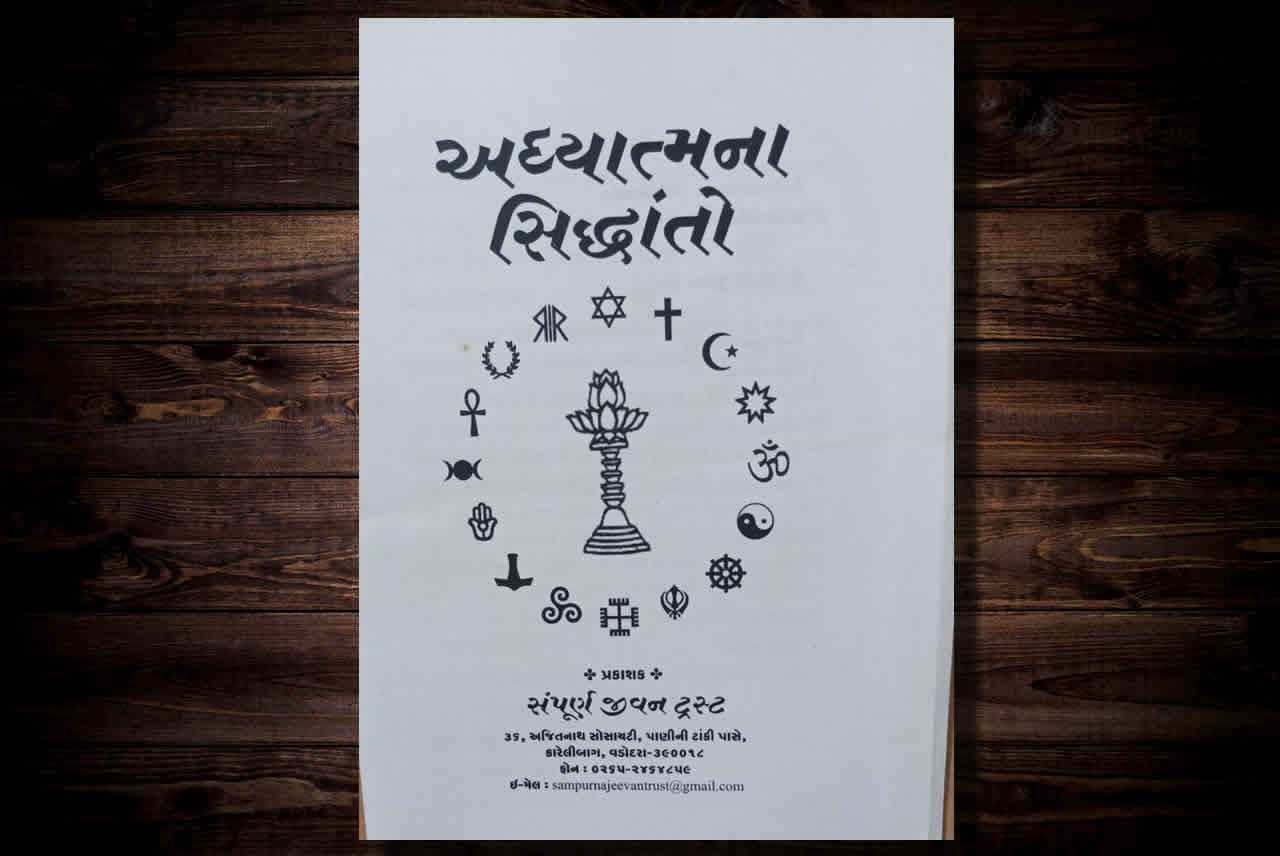 અધ્યાત્મના
સિદ્ધાંતો
✤ પ્રકાશક ✤
સંપૂર્ણ જીવન ટ્રસ્ટ
૩૬, અજિતનાથ સોસાયટી, પાણીની ટાંકી પાસે,
કારેલીબાગ, વડોદરા-૩૯૦૦૧૮
ફોન : ૦૨૬૫-૨૪૬૪૮૫૯
ઈ-મેલ : sampurnajeevantrust@gmail.com